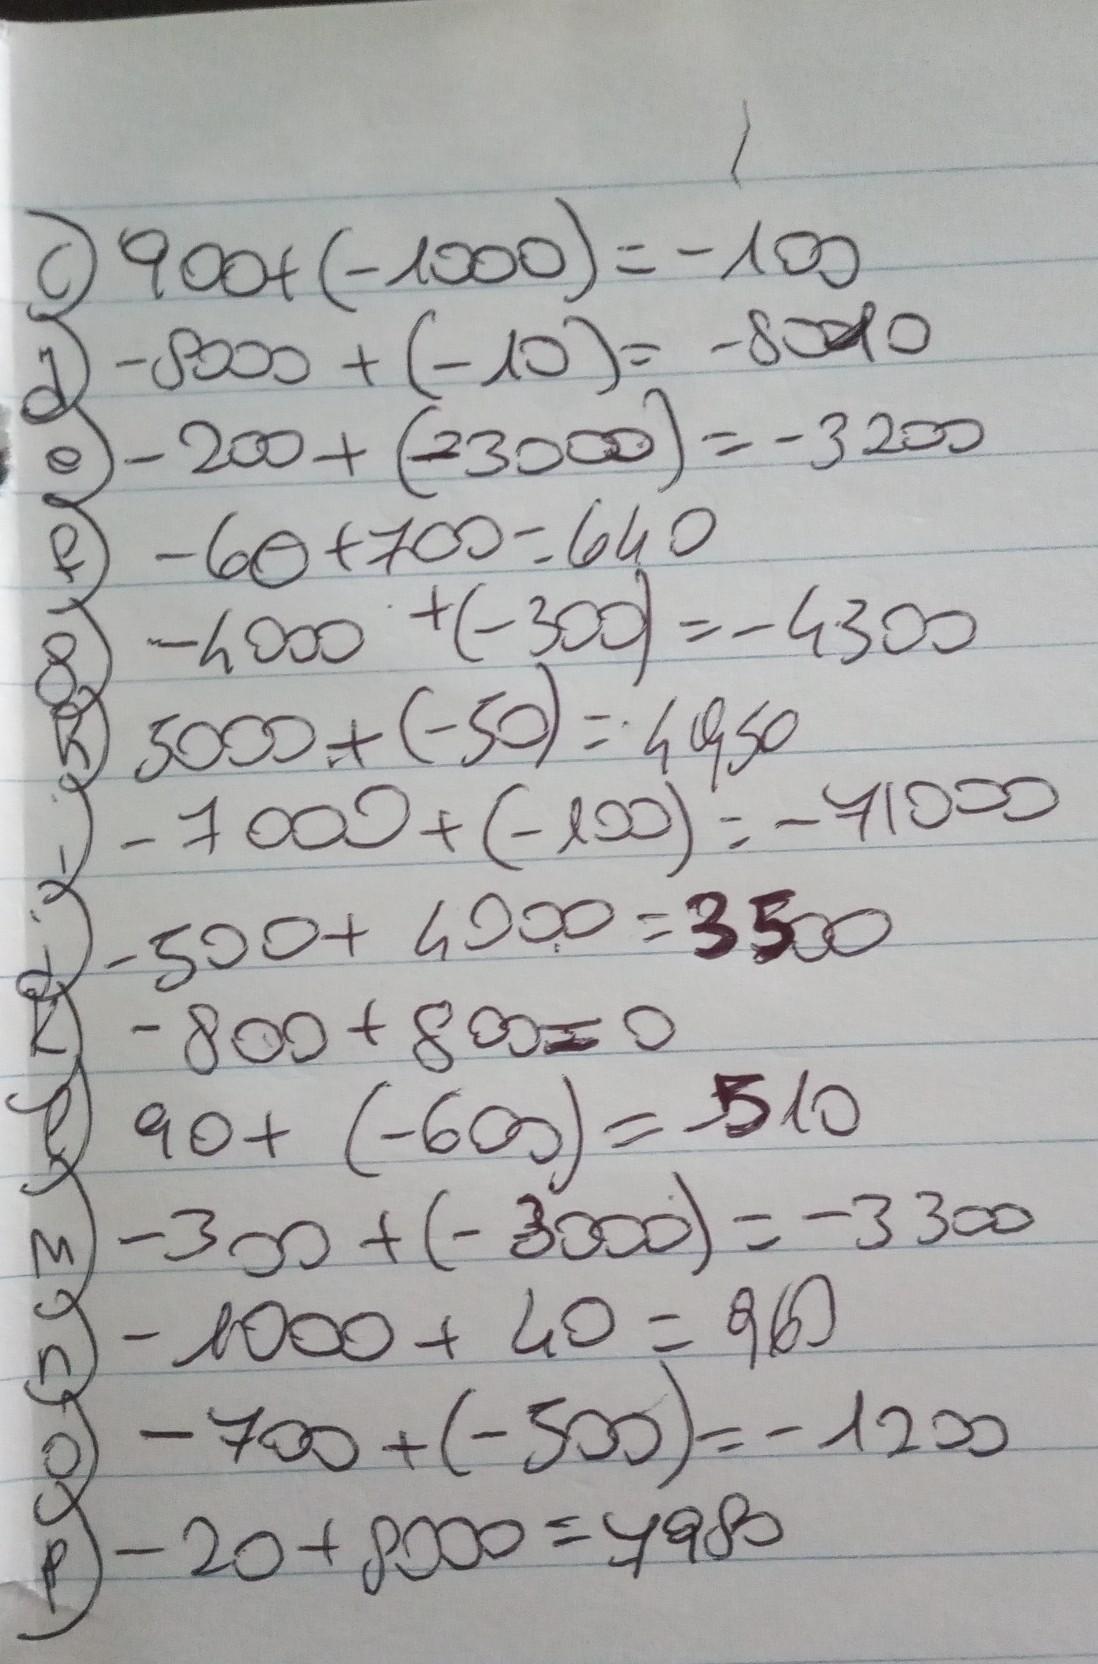 c) 900+(-1000)=-100
d) -8000+(-10)=-8010
e) -200+(-3000)=-3200
f) -60+700=640
g) -4000+(-300)=-4300
h) 5000+(-50)=4950
i) -7000+(-100)=-71000
j) -500+4000=3500
k) -800+800=0
l) 90+(-600)=-510
m) -300+(-3000)=-3300
n) -1000+40=960
o) -700+(-500)=-1200
p) -20+8000=7980